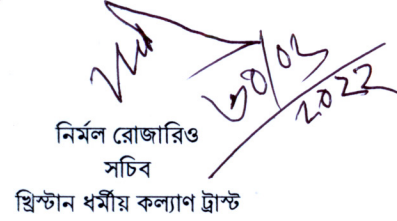 ৩০/০৩/2022
নির্মল রোজারিও
সচিব
খ্রিস্টান ধর্মীয় কল্যাণ ট্রাস্ট